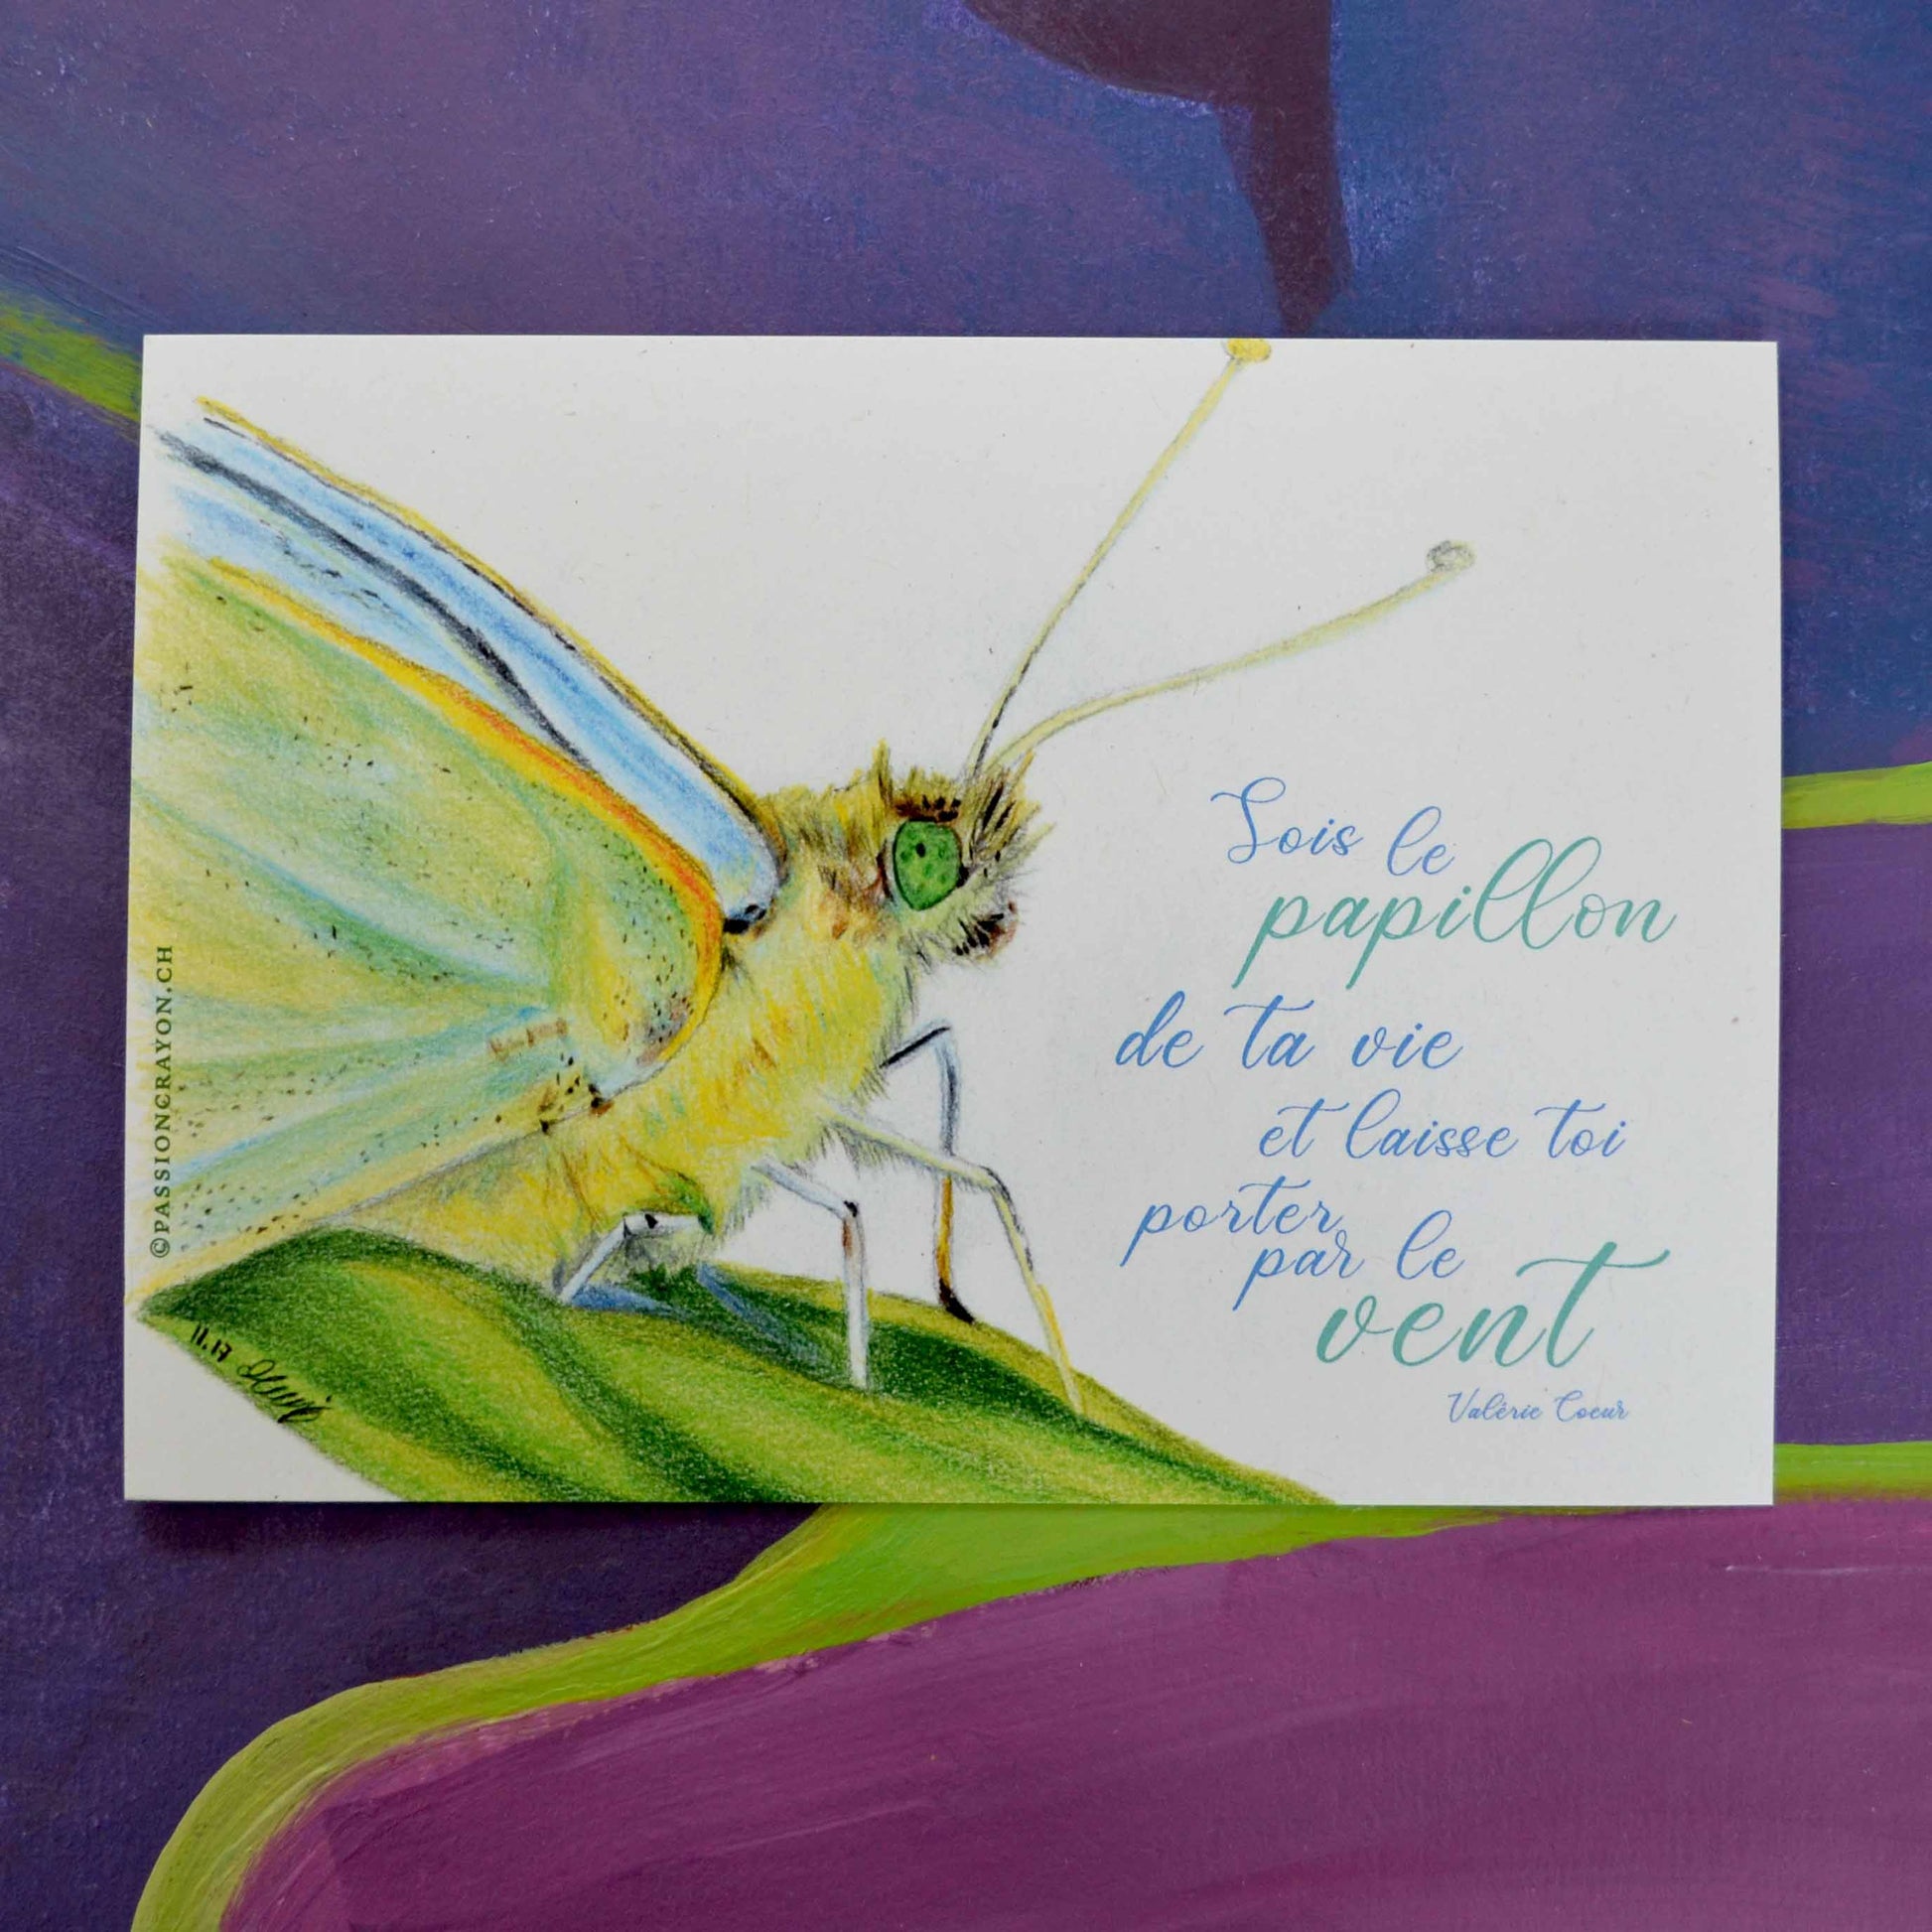 Sois le
papillon
de ta vie
et laisse toi
porter
par le
vent
Valérie Coeur
©PASSIONCRAYON.CH
11.17